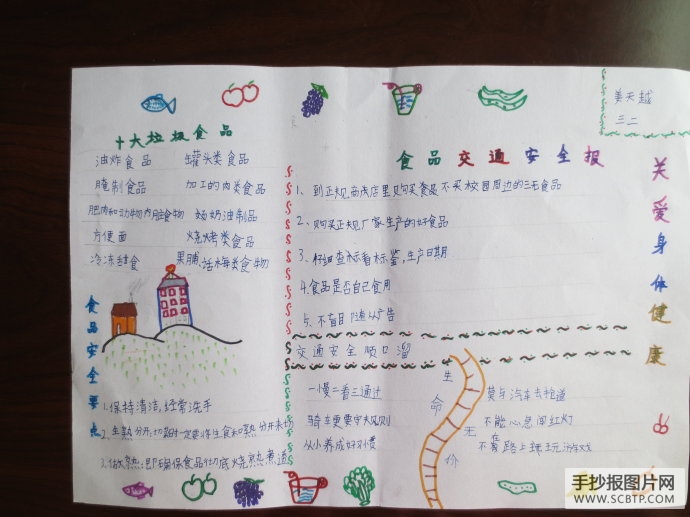 姜天越
三二
十大垃圾食品
油炸食品 罐头类食品
腌制食品 加工的肉类食品
肥肉和动物内脏食物 奶油制品
方便面 烧烤类食品
冷冻甜食 果脯、话梅类食物
食品交通安全报
1、到正规商店里购买食品不买校园周边的三无食品
2、购买正规厂家生产的好食品
3、仔细查看标签,生产日期
4.食品是否自己食用
5、不盲目随从广告
关爱身体健康
交通安全顺口溜
一慢二看三通过
骑车更要守规则
从小养成好习惯
生命无价
莫与汽车去抢道
不能心急闯红灯
不在路上玩游戏
食品安全要点
1.保持清洁,经常洗手
2、生熟分开,切菜时一定要将生食和熟分开来切
3、做熟:即确保食品彻底烧熟煮透
手抄报图片网
WWW.SCBTP.COM